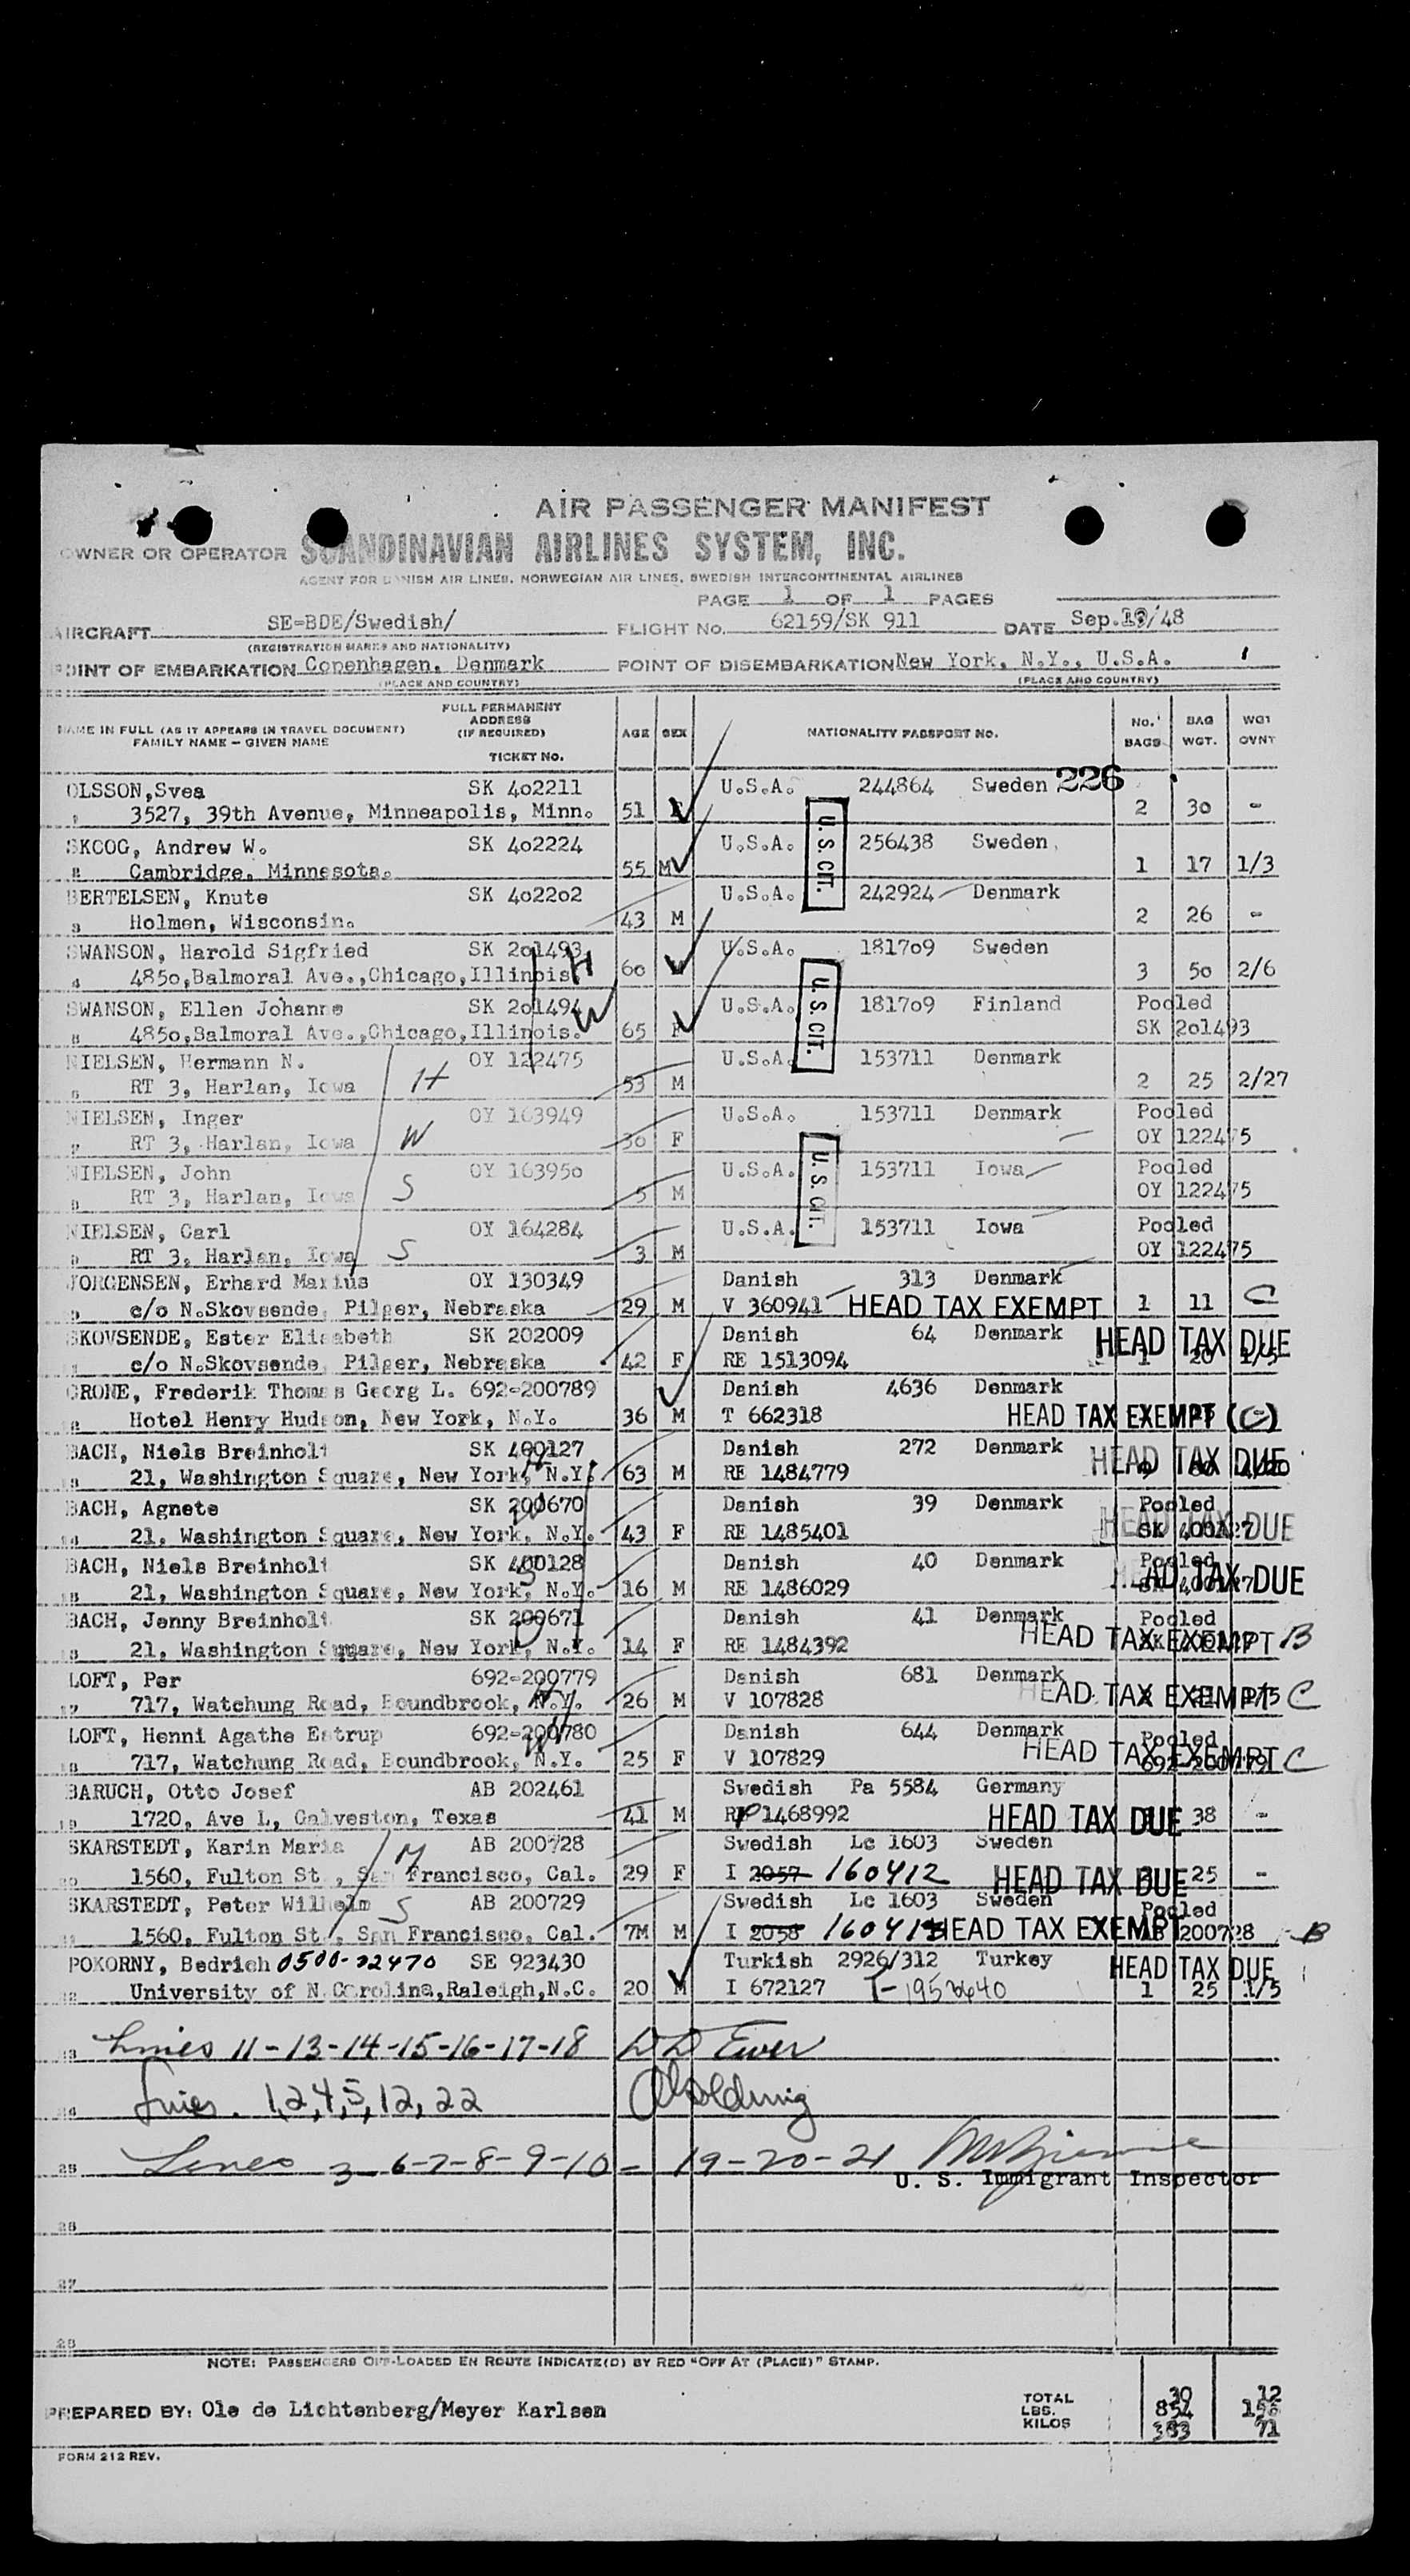 AIR PASSENGER MANIFEST
OWNER OR OPERATOR SCANDINAVIAN AIRLINES SYSTEM, INC.
AGENT FOR DANISH AIR LINES, NORWEGIAN AIR LINES, SWEDISH INTERCONTINENTAL AIRLINES
PAGE 1 OF 1 PAGES
AIRCRAFT SE-BDE/Swedish/ FLIGHT No. 62159/SK 911 DATE Sep. /48
(REGISTRATION MARKS AND NATIONALITY)
POINT OF EMBARKATION Copenhagen, Denmark POINT OF DISEMBARKATION New York, N.Y., U.S.A.
(PLACE AND COUNTRY) (PLACE AND COUNTRY)
NAME IN FULL (AS IT APPEARS IN TRAVEL DOCUMENT) FAMILY NAME – GIVEN NAME FULL PERMANENT ADDRESS (IF REQUIRED) TICKET No. AGE SEX NATIONALITY PASSPORT NO. No. BAGS BAG WGT. WGT OVNT
OLSSON, Svea SK 402211 U.S.A. 244864 Sweden 226
3527, 39th Avenue, Minneapolis, Minn. 51 F 2 30 -
SKOOG, Andrew W. SK 402224 U.S.A. 256438 Sweden
Cambridge, Minnesota. 55 M U.S. CIT. 1 17 1/3
BERTELSEN, Knute SK 402202 U.S.A. 242924 Denmark
Holmen, Wisconsin. 43 M 2 26 -
SWANSON, Harold Sigfried SK 201493 U.S.A. 181709 Sweden
4850, Balmoral Ave., Chicago, Illinois H 60 3 50 2/6
SWANSON, Ellen Johanne SK 201494 U.S.A. 181709 Finland Pooled
4850, Balmoral Ave., Chicago, Illinois. W 65 F U.S. CIT. SK 201493
NIELSEN, Hermann N. OY 122475 U.S.A. 153711 Denmark
RT 3, Harlan, Iowa H 53 M 2 25 2/27
NIELSEN, Inger OY 163949 U.S.A. 153711 Denmark Pooled
RT 3, Harlan, Iowa W 30 F OY 122475
NIELSEN, John OY 163950 U.S.A. 153711 Iowa Pooled
RT 3, Harlan, Iowa S 5 M U.S. CIT. OY 122475
NIELSEN, Carl OY 164284 U.S.A. 153711 Iowa Pooled
RT 3, Harlan, Iowa S 3 M OY 122475
JORGENSEN, Erhard Marius OY 130349 Danish 313 Denmark
c/o N.Skovsende, Pilger, Nebraska 29 M V 360941 HEAD TAX EXEMPT 1 11 C
SKOVSENDE, Ester Elisabeth SK 202009 Danish 64 Denmark HEAD TAX DUE
c/o N.Skovsende, Pilger, Nebraska 42 F RE 1513094 1 20 1/5
CRONE, Frederik Thomas Georg L. 692-200789 Danish 4636 Denmark
Hotel Henry Hudson, New York, N.Y. 36 M T 662318 HEAD TAX EXEMPT (C)
BACH, Niels Breinholt SK 400127 Danish 272 Denmark HEAD TAX DUE
21, Washington Square, New York, N.Y. 63 M RE 1484779
BACH, Agnete SK 200670 Danish 39 Denmark Pooled
21, Washington Square, New York, N.Y. 43 F RE 1485401 SK 400127 HEAD TAX DUE
BACH, Niels Breinholt SK 400128 Danish 40 Denmark Pooled
21, Washington Square, New York, N.Y. 16 M RE 1486029 HEAD TAX DUE
BACH, Jenny Breinholt SK 200671 Danish 41 Denmark Pooled
21, Washington Square, New York, N.Y. 14 F RE 1484392 HEAD TAX EXEMPT B
LOFT, Per 692-200779 Danish 681 Denmark
717, Watchung Road, Boundbrook, N.Y. 26 M V 107828 HEAD TAX EXEMPT C
LOFT, Henni Agathe Estrup 692-200780 Danish 644 Denmark Pooled
717, Watchung Road, Boundbrook, N.Y. 25 F V 107829 HEAD TAX EXEMPT 692-200779 C
BARUCH, Otto Josef AB 202461 Swedish Pa 5584 Germany
1720, Ave L, Galveston, Texas 41 M RP 1468992 HEAD TAX DUE 38 -
SKARSTEDT, Karin Maria AB 200728 Swedish Lc 1603 Sweden
1560, Fulton St., San Francisco, Cal. M 29 F I 2057 160412 HEAD TAX DUE 25 -
SKARSTEDT, Peter Wilhelm S AB 200729 Swedish Lc 1603 Sweden Pooled
1560, Fulton St., San Francisco, Cal. 7M M I 2058 160413 HEAD TAX EXEMPT AB 200728 B
POKORNY, Bedrich 0500-22470 SE 923430 Turkish 2926/312 Turkey HEAD TAX DUE
University of N.Carolina, Raleigh, N.C. 20 M I 672127 1 25 1/5
Lines 11-13-14-15-16-17-18 D D Ewer
Lines. 1,2,4,5,12,22
25 Lines 3-6-7-8-9-10- 19-20-21
U. S. Immigrant Inspector
26
27
28
NOTE: PASSENGERS OFF-LOADED EN ROUTE INDICATE(D) BY RED "OFF AT (PLACE)" STAMP.
PREPARED BY: Ole de Lichtenberg/Meyer Karlsen
TOTAL 30 12
LBS. 854 156
KILOS 71
FORM 212 REV.